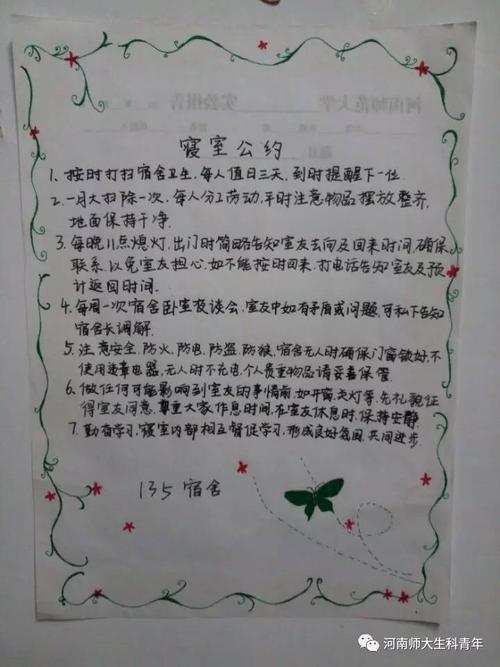 河南师范大学
实验报告
寝室公约
1、按时打扫宿舍卫生，每人值日三天，到时提醒下一位
2、一月大扫除一次，每人分工劳动，平时注意物品摆放整齐，
地面保持干净.
3、每晚11点熄灯，出门时简略告知室友去向及回来时间，确保
联系，以免室友担心，如不能按时回来，打电话告知室友及预
计返回时间.
4、每周一次宿舍卧室夜谈会，室友中如有矛盾或问题，可私下告知
宿舍长调解.
5、注意安全，防火，防电，防盗，防猴，宿舍无人时确保门窗锁好，不
使用违章电器，无人时不充电，个人贵重物品请妥善保管
6、做任何可能影响到室友的事情前，如开窗、关灯等，先礼貌征
得室友同意，尊重大家作息时间，在室友休息时，保持安静
7、勤奋学习，寝室内部相互督促学习，形成良好氛围，共同进步.
135 宿舍
河南师大生科青年